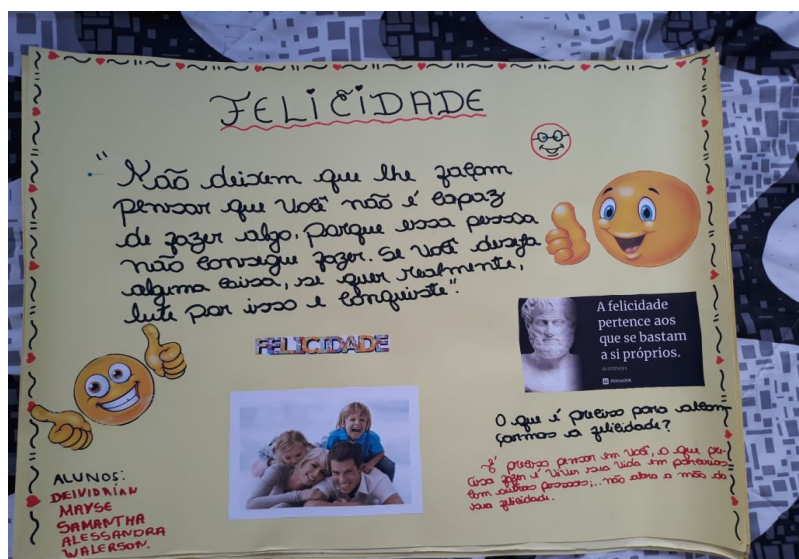 FELICIDADE
"Não deixem que lhe façam
pensar que você não é capaz
de fazer algo, porque essa pessoa
não consegue fazer. Se você deseja
alguma coisa, se quer realmente,
lute por isso e conquiste".
FELICIDADE
A felicidade
pertence aos
que se bastam
a si próprios.
Aristóteles
PENSADOR
O que é preciso para alcan-
çarmos a felicidade?
É preciso pensar em você, o que pre-
cisa fazer é viver sua vida em parcerias
com outras pessoas;.. não abra a mão da
sua felicidade.
ALUNOS:
DEIVIDRÍAN
MAYSE
SAMANTHA
ALESSANDRA
WALERSON.